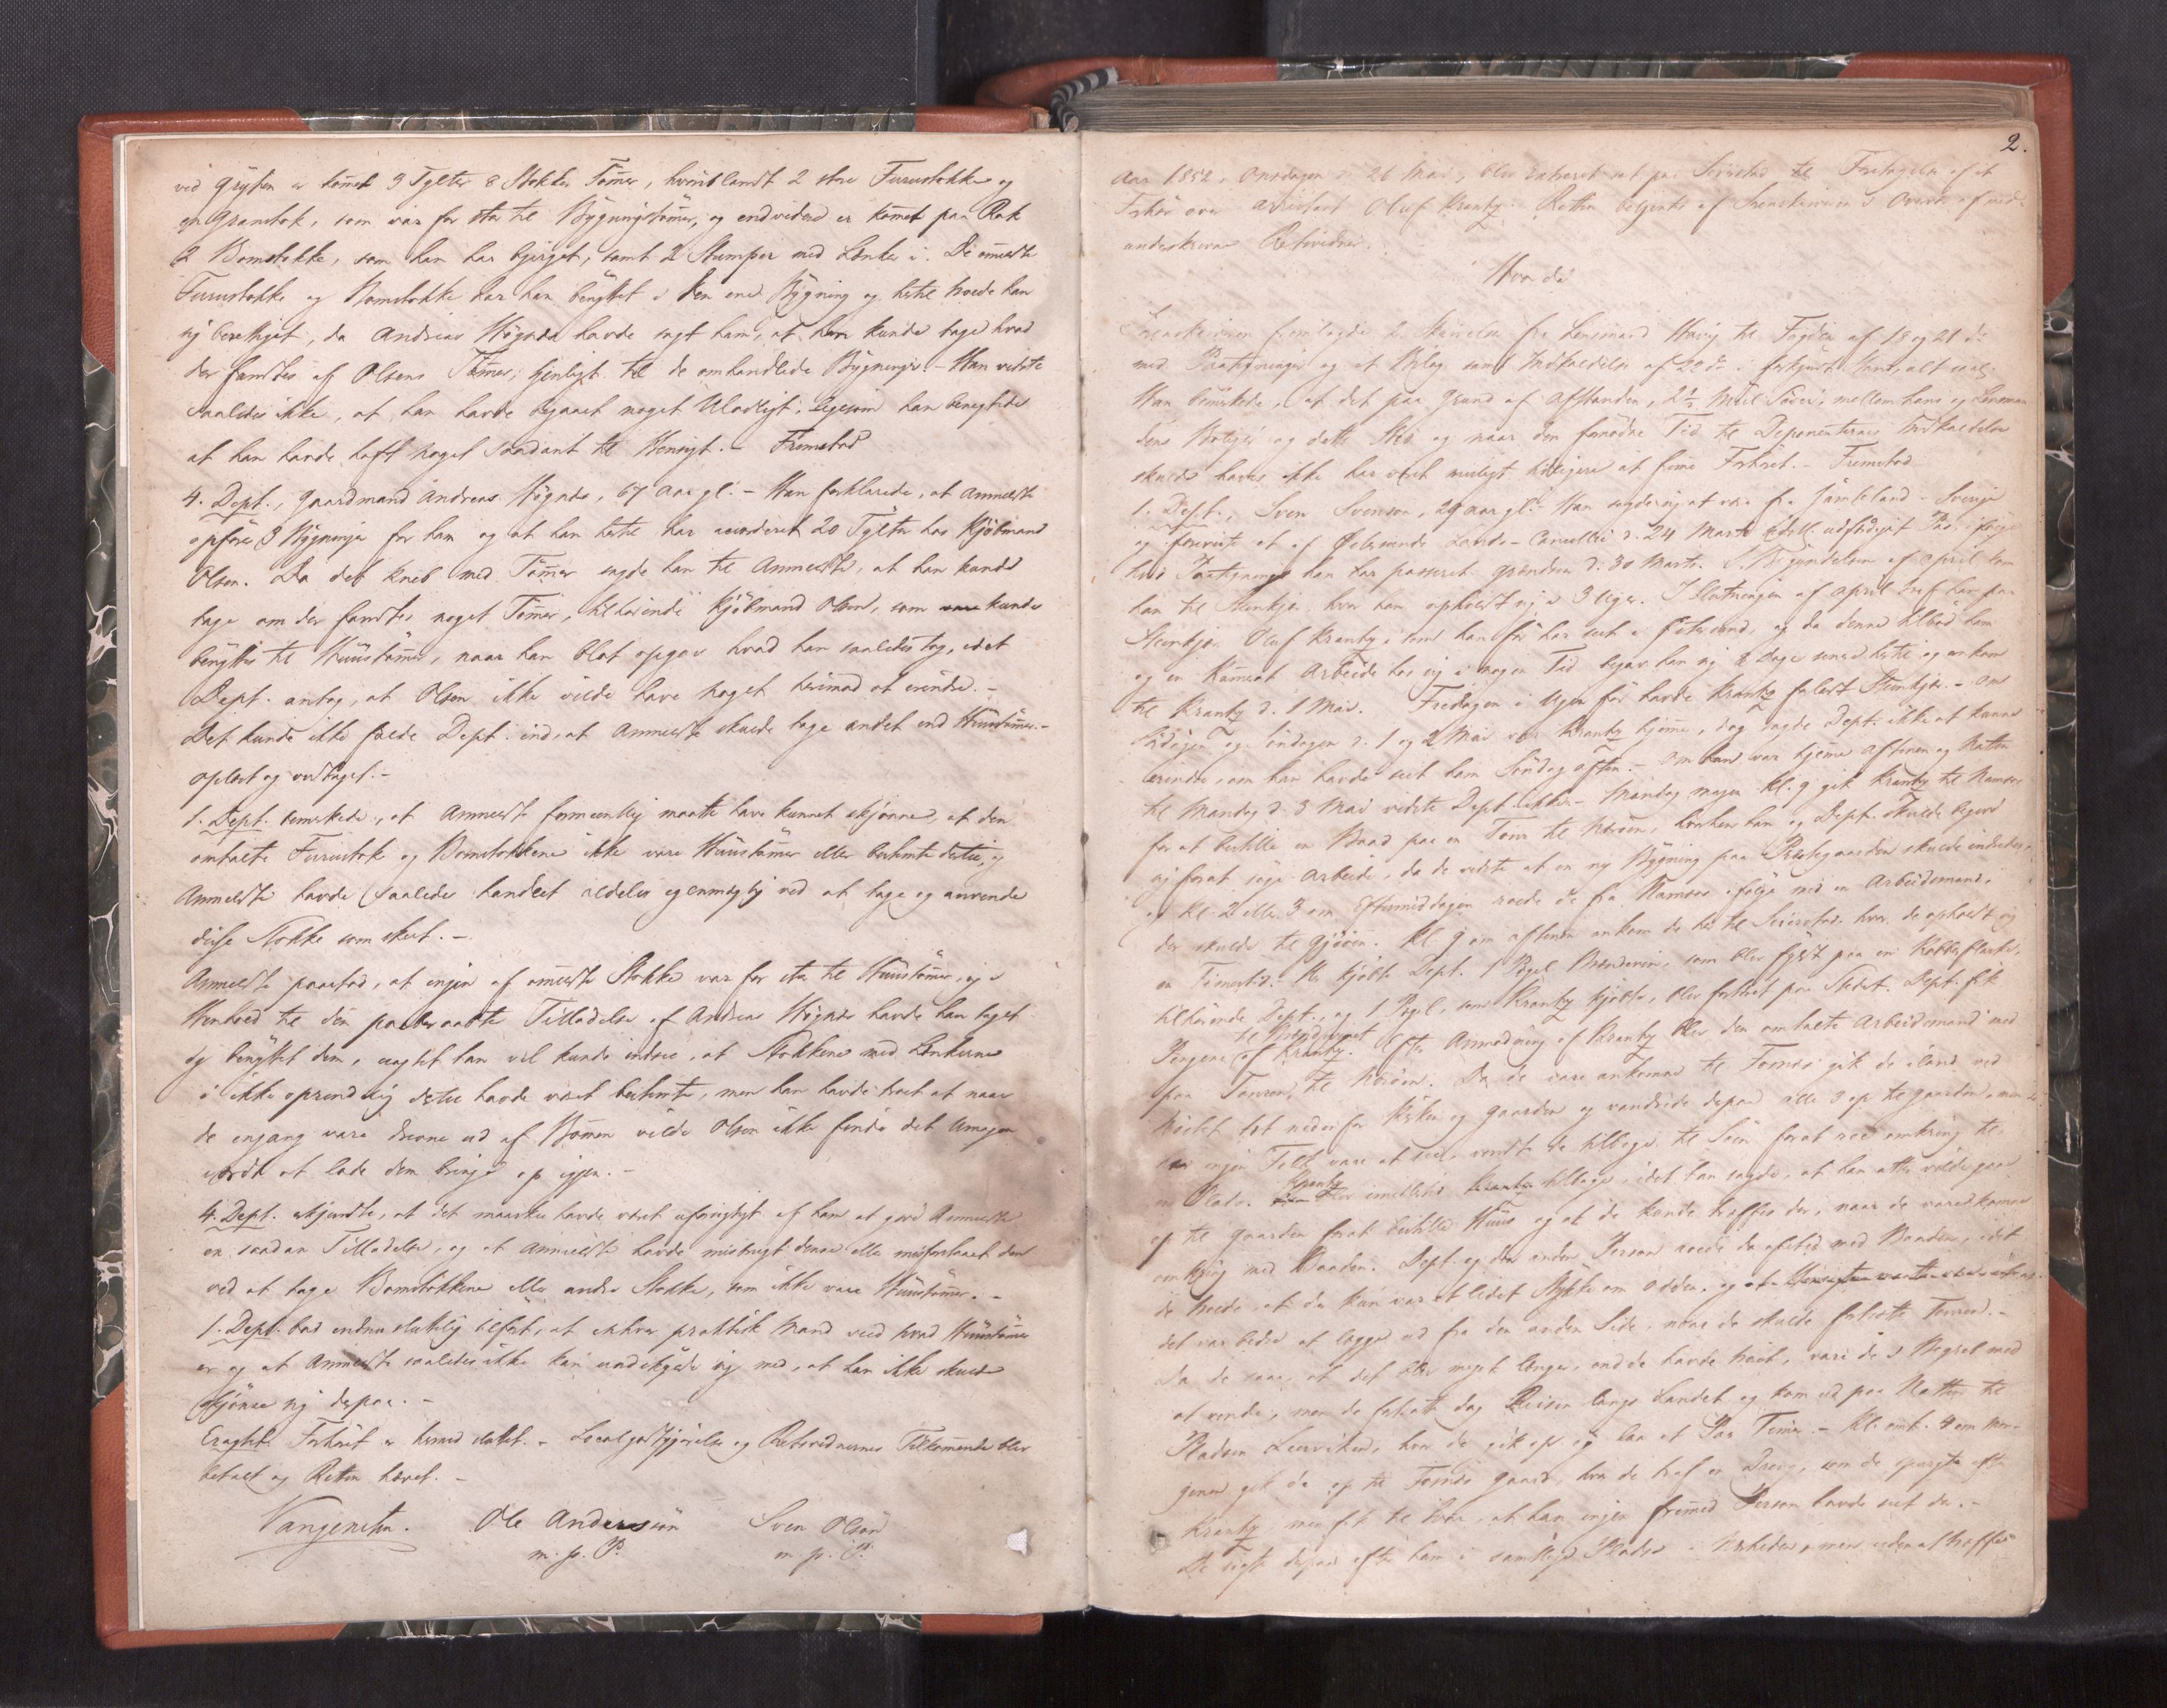 ved Gryten er komet 3 Tylter 8 Stokker Tømer, hvoriblandt 2 store Furustokke og
en Granstok, som var for stor til Bygningstømer, og endvidere er komet paa Rak
2 Bomstokke, som han har bjerget, samt 2 Stumper med Lænker i. De ommeldte
Furustokke og Bomstokke har han benyttet i den ene Bygning og hertil troede han
sig berettiget, da Andreas Høgnæs havde sagt ham, at han kunde tage hvad
der fandtes af Olsens Tømer, tjenligt til de omhandlede Bygninger. - Han vidste
saaledes ikke, at han havde begaaet noget Ulovligt, ligesom han benegtede
at han havde havt noget saadant til Hensigt. - Fremstod
4. Dept., Gaardmand Andreas Høgnæs, 67 Aar gl. - Han forklarede, at Anmeldte
opfører 3 Bygninger for ham og at han hertil har accorderet 20 Tylter hos Kjøbmand
Olsen. Da det kneb med Tømer sagde han til Anmeldte, at han kunde
tage om der fandtes noget Tømer, tilhørende Kjøbmand Olsen, som kunde
benyttes til Huustømer, naar han blot opgav hvad han saaledes tog, idet
Dept. antog, at Olsen ikke vilde have noget herimod at erindre. -
Det kunde ikke falde Dept. ind, at Anmeldte skulde tage andet end Huustømer. -
Oplæst og vedtaget. -
1. Dept. bemærkede, at Anmeldte formeentlig maatte have kunnet skjønne, at den
omtalte Furustok og Bomstokkene ikke vare Huustømer eller bestemte dertil, og
Anmeldte havde saaledes handlet aldeles egenmægtig ved at tage og anvende
disse Stokke som skeet. -
Anmeldte paastod, at ingen af ommeldte Stokke var for stor til Huustømer, og i
Henhold til den paaberaabte Tilladelse af Andreas Høgnæs havde han taget
og benyttet dem, uagtet han vel kunde indsee, at Stokkene med Lænkerne
i ikke oprindelig dertil havde været bestemte, men han havde troet at naar
de engang vare drevne ud af Bomen vilde Olsen ikke finde det Umagen
værdt at lade dem bringe op igjen. -
4. Dept. erkjendte, at det maaske havde været uforsigtigt af ham at give Anmeldte
en saadan Tilladelse, og at Anmeldte havde misbrugt denne eller misforstaaet den
ved at tage Bomstokkene eller andre Stokke, som ikke vare Huustømer. -
1. Dept. bad endnu sluttelig tilført, at enhver praktisk Mand veed hvad Huustømer
er og at Anmeldte saaledes ikke kan undskylde sig med, at han ikke skulde
skjønne sig derpaa. -
Eragtet: Forhøret er hermed sluttet. - Localgodtgjørelse og Retsvidnernes Tilkommende blev
betalt og Retten hævet. -
Vangensten. Ole Anderssøn Sven Olsøn
m. p. P. m. p. P.
2.
Aar 1852, Onsdagen d. 26 Mai, blev Extraret sat paa Seierstad til Foretagelse af et
Forhør over Arrestant Oluf Krantz. Retten betjentes af Sorenskriveren i Overvær af med-
underskrevne Retsvidner.
Hvorda
Sorenskriveren fremlagde 2 Skrivelser fra Lensmand Havig til Fogden af 18 og 21 ds
med Paategninger og et Bilag samt Indkaldelse af 22 ds i forkyndt Stand, alt saal.
Han bemærkede, at det paa Grund af Afstanden, 2½ Miil Søvei, mellem hans og Lensman
dens Bolig og dette Sted og naar den fornødne Tid til Deponenternes Indkaldelse
skulde haves ikke har været muligt tidligere at fremme Forhøret. - Fremstod
1. Dept., Sven Svenson, 29 Aar gl. Han sagde sig at være fra Jämteland i Sverige
og foreviste et af Østersunds Lands-Cancelli d. 24 Marts udfærdiget Pas, ifølge
hvis Paategning han har passeret Grændsen d. 30 Marts. I Begyndelsen af April kom
han til Steenkjær, hvor han opholdt sig i 3 Uger. I Slutningen af April traf han paa
Steenkjær Oluf Krantz, som han før har seet i Østersund, og da denne tilbød ham
og en Kamerat Arbeide hos sig i nogen Tid begav han sig 2 Dage senere hertil og ankom
til Krantz d. 1 Mai. Fredagen i Ugen før havde Krantz forladt Steenkjær. - Om
Lørdagen og Søndagen d. 1 og 2 Mai var Krantz hjemme, dog sagde Dept. ikke at kunne
erindre, om han havde seet ham Søndag Aften. - Om han var hjemme Aftenen og Natten
til Mandag d. 3 Mai vidste Dept. ikke. - Mandag Morgen Kl. 9 gik Krantz til Namsos
for at bestille en Baad paa en Tour til Nærøen, hvorhen han og Dept. skulde begive
sig forat søge Arbeide, da de vidste at en ny Bygning paa Præstegaarden skulde indredes,
og Kl. 2 eller 3 om Eftermiddagen roede de fra Namsos i følge med en Arbeidsmand,
der skulde til Gjøøen. Kl. 9 om Aftenen ankom de her til Seierstad, hvor de opholdt sig
en Timestid. Her kjøbte Dept. 1 Pægl Brændeviin, som blev fyldt paa en Kobberflaske,
tilhørende Dept., og 1 Pægl, som Krantz kjøbte, blev fortæret paa Stedet. Dept. fik
til Brændevinet
Pengene af Krantz. Efter Anmodning af Krantz blev den omtalte Arbeidsmand med
paa Touren til Nærøen. Da de vare ankomne til Fosnæs gik de iland ved
Nøstet tæt nedenfor Kirken og Gaarden og vandrede derpaa alle 3 op til Gaarden, men da
ingen Folk vare at see, vendte de tilbage til Søen forat roe omkring til
en Plads. Krantz blev imidlertid tilbage, idet han sagde, at han atter vilde gaae
op til Gaarden forat bestille Huus og at de kunde træffes der, naar de vare komne
omkring med Baaden. Dept. og den anden Person roede da afsted med Baaden, idet
de troede, at der kun var et lidet Stykke om Odden, og at
det var bedre at lægge ud fra den anden Side, naar de skulde fortsætte Touren. -
Da de saae, at det blev meget længer, end de havde troet, vare de i Begreb med
at vende, men de fortsatte dog Reisen langs Landet og kom ud paa Natten til
Pladsen Leerviken, hvor de gik op og laa et Par Timer. - Kl. omt. 4 om Mor-
genen gik de op til Fosnæs Gaard, hvor de traf en Dreng, som de spurgte efter
Krantz, men fik til Svar, at han ingen fremmed Person havde seet der. -
De søgte derpaa efter ham i samtlige Pladse i Nærheden, men uden at træffe